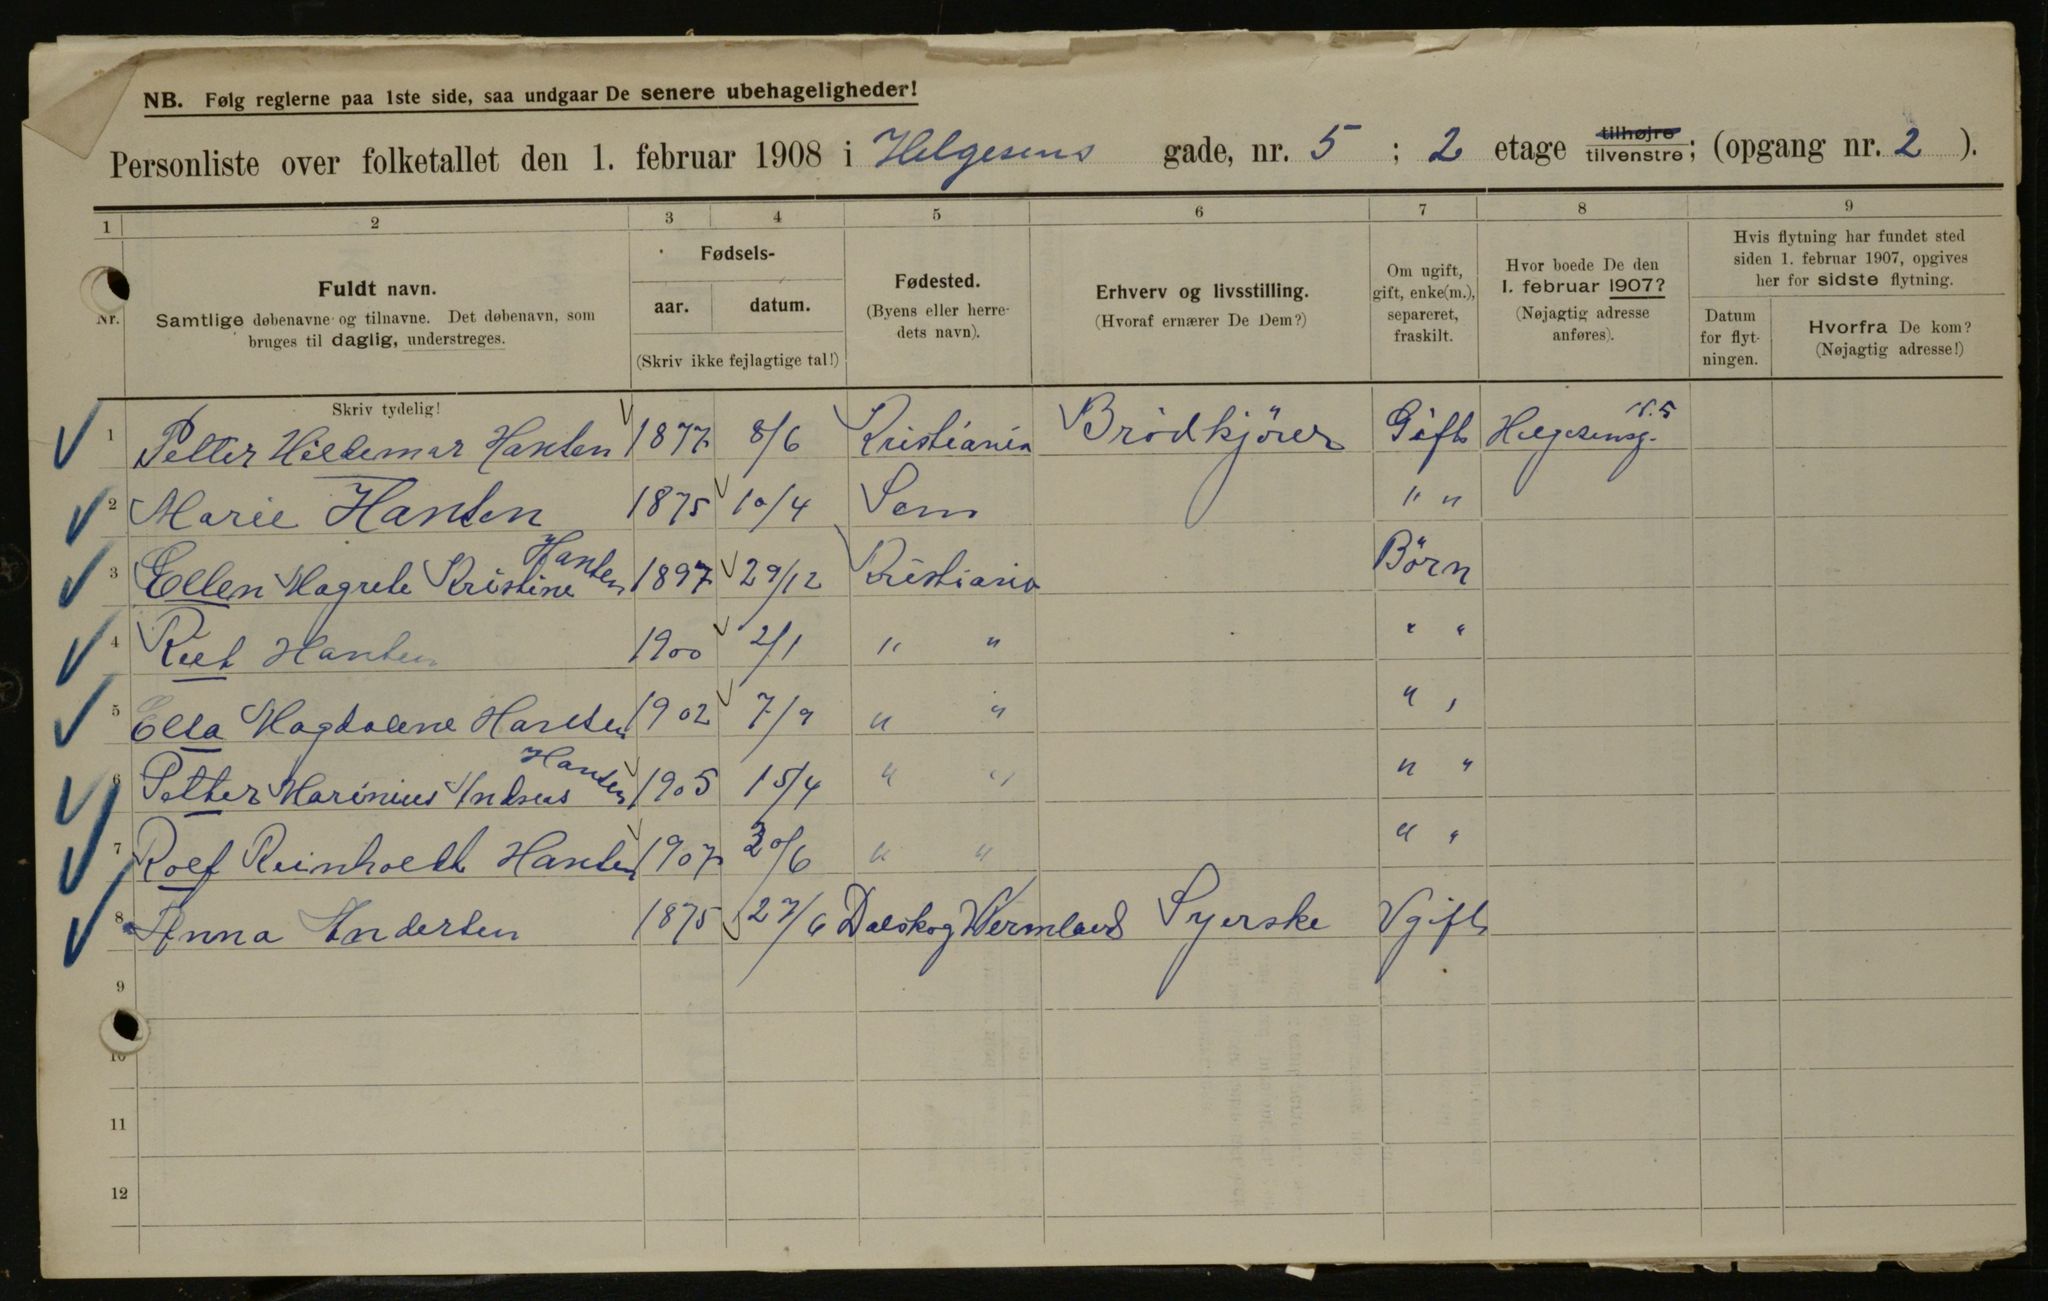 NB. Følg reglerne paa 1ste side, saa undgaar De senere ubehageligheder!
Personliste over folketallet den 1. februar 1908 i Helgesens gade, nr. 5 ; 2 etage tilhøjre tilvenstre; (opgang nr. 2 ).
1 2 3 4 5 6 7 8 9
Nr.
Fuldt navn.
Samtlige døbenavne og tilnavne. Det døbenavn, som
bruges til daglig, understreges.
Skriv tydelig!
Fødsels-
aar. datum.
(Skriv ikke fejlagtige tal!)
Fødested.
(Byens eller herre-
dets navn).
Erhverv og livsstilling.
(Hvoraf ernærer De Dem?)
Om ugift,
gift, enke(m.),
separeret,
fraskilt.
Hvor boede De den
1. februar 1907?
(Nøjagtig adresse
anføres).
Hvis flytning har fundet sted
siden 1. februar 1907, opgives
her for sidste flytning.
Datum
for flyt-
ningen.
Hvorfra De kom?
(Nøjagtig adresse!)
1 Petter Hildemar Hansen 1877 8/6 Kristiania Brödkjörer Gift Helgesensg. N. 5
2 Marie Hansen 1875 10/4 Sem " "
3 Ellen Magrete Kristine Hansen 1897 29/12 Kristiania Börn
4 Rut Hansen 1900 2/1 " " " "
5 Elsa Magdalene Hansen 1902 7/9 " " " "
6 Petter Marinius Andreas Hansen 1905 15/4 " " " "
7 Rolf Reinholdt Hansen 1907 30/6 " " " "
8 Anna Andersen 1875 27/6 Dalskog Wermland Syerske Ugift
9
10
11
12